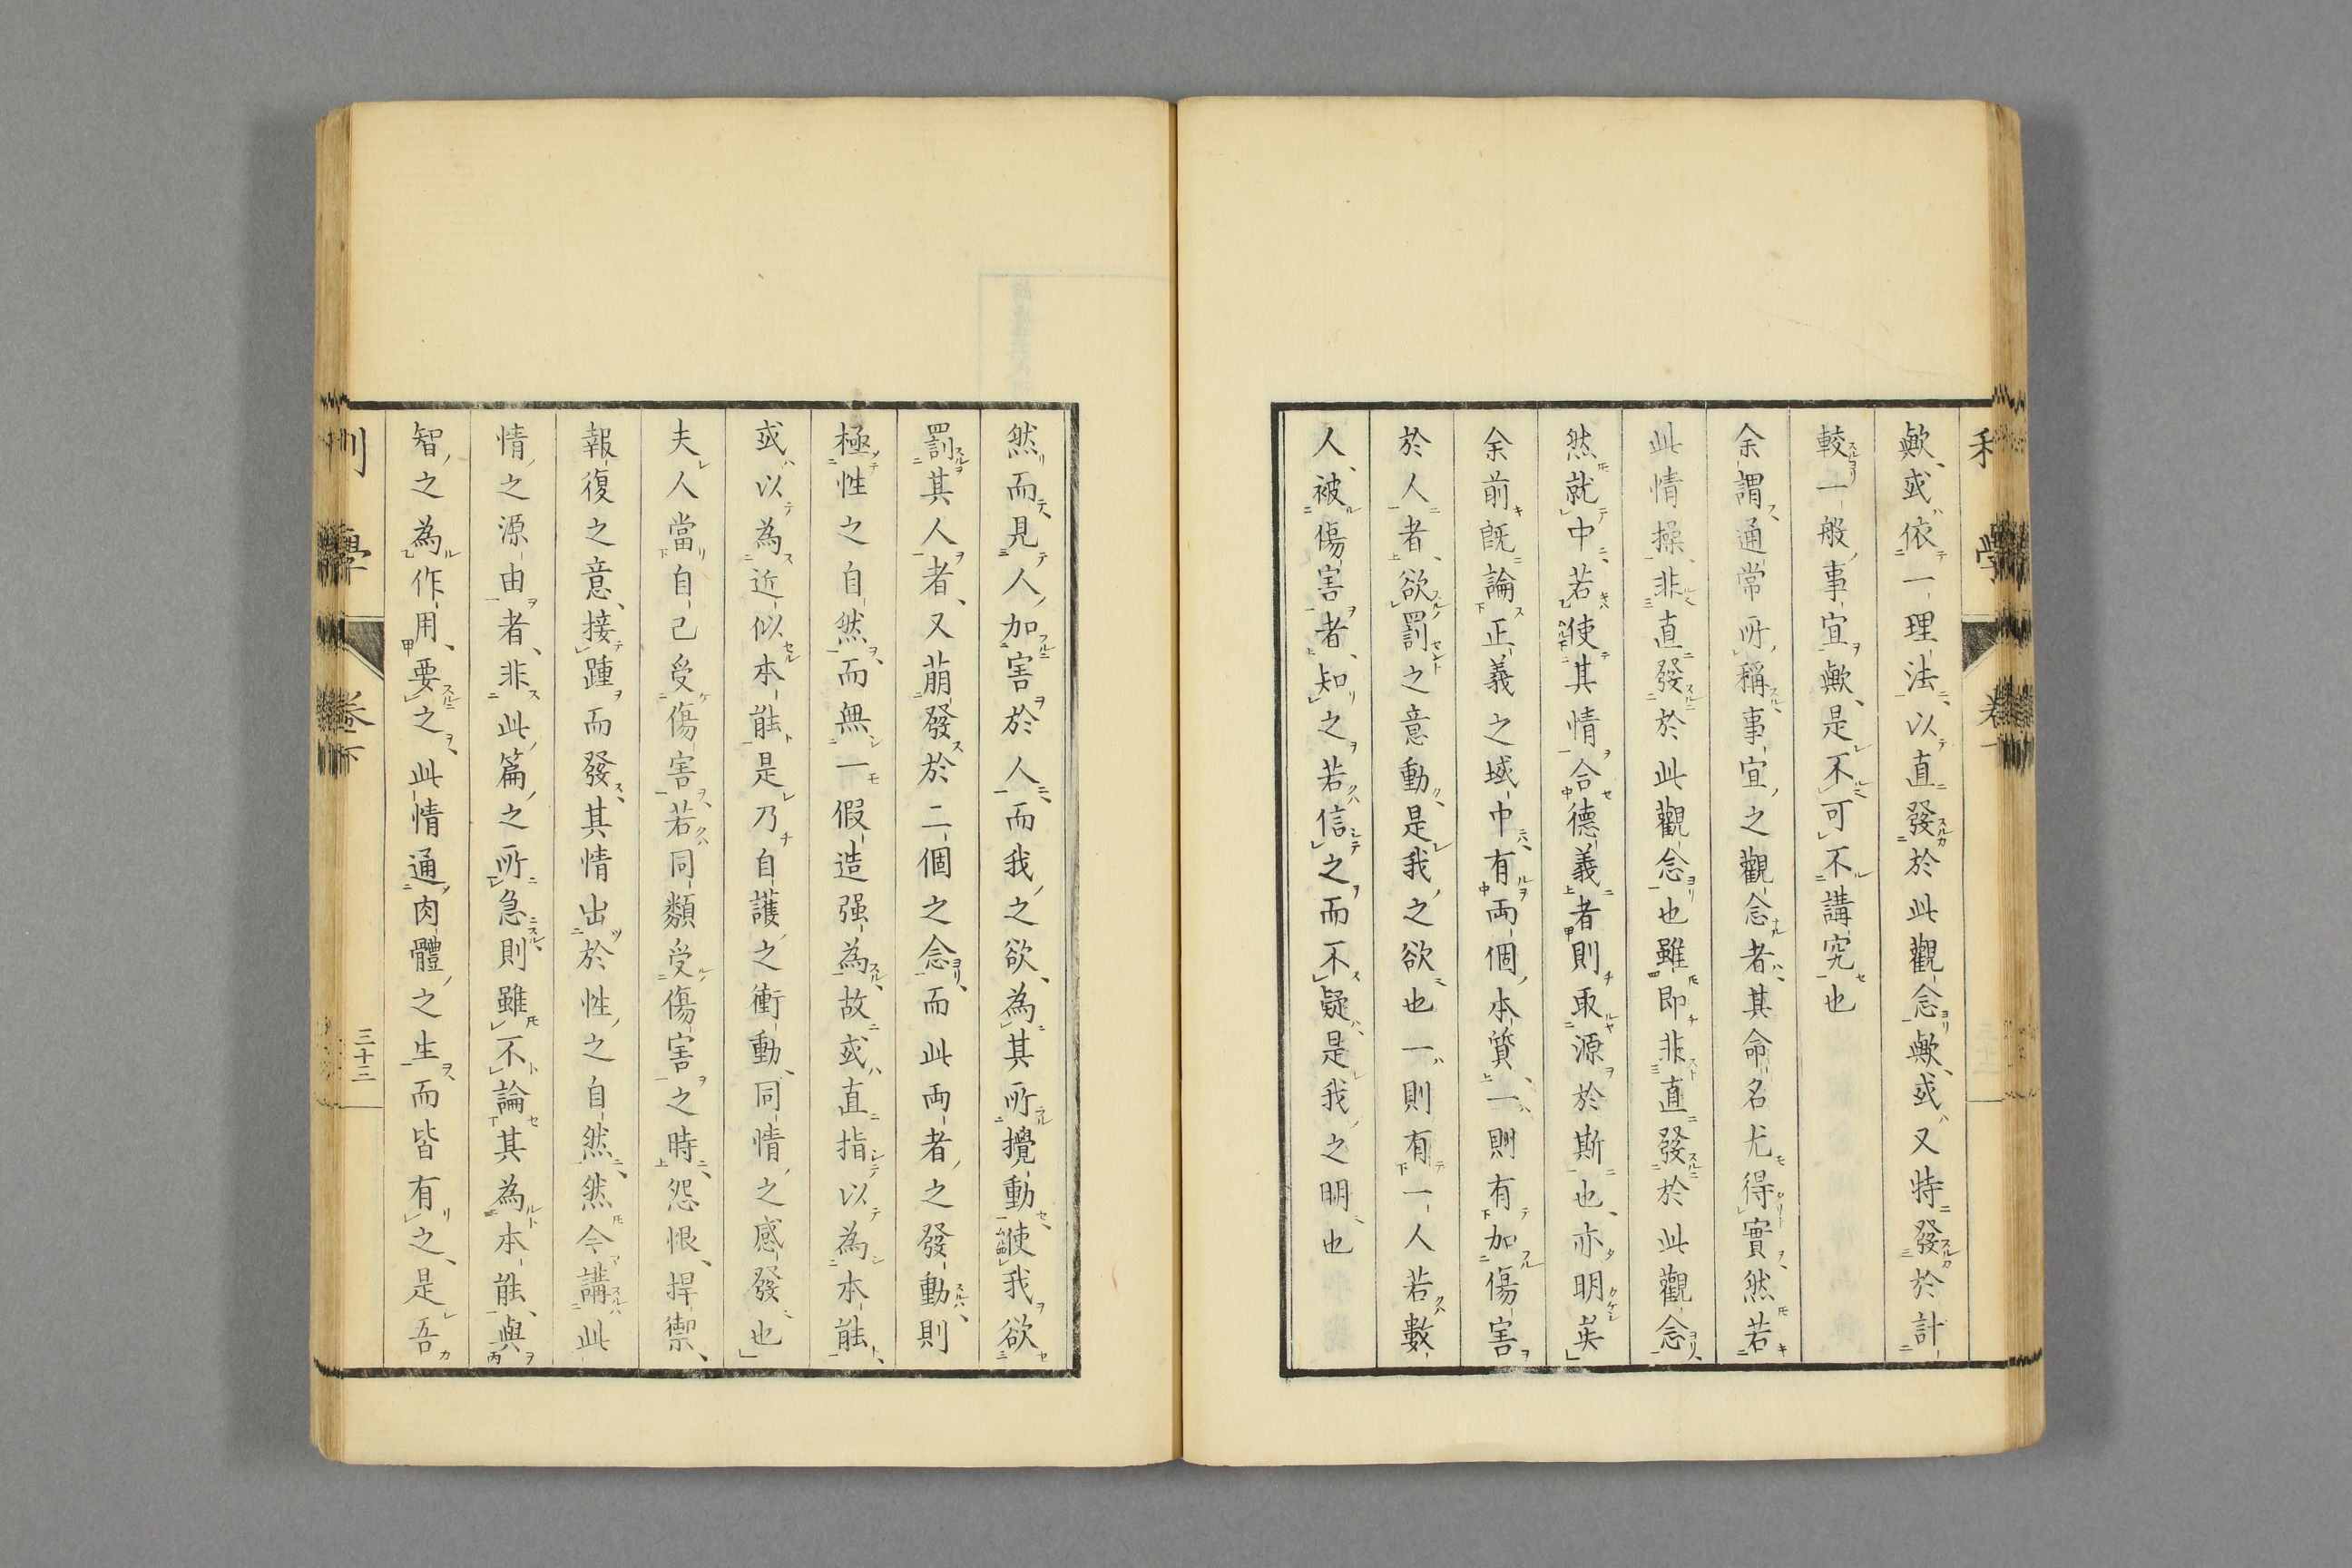 歟、或依一理法、以直發於此觀念歟、或又特發於計
較一般事宜歟、是不可不講究也
余謂通常所稱事宜之觀念者、其命名尤得實、然若
此情操、非直發於此觀念也雖即非直發於此觀念、
然就中、若使其情合德義者則取源於斯也、亦明矣
余前既論正義之域中、有兩個本質、一則有加傷害
於人者、欲罰之意動、是我之欲也一則有一人若數
人、被傷害者、知之若信之而不疑、是我之明也
然而見人加害於人、而我之欲、為其所攪動、使我欲
罰其人者、又萠發於二個之念、而此兩者之發動、則
極性之自然、而無一假造强為、故或直指以為本能、
或以為近似本能是乃自護之衝動、同情之感發也
夫人當自己受傷害、若同類受傷害之時、怨恨、捍禦、
報復之意、接踵而發、其情出於性之自然、然今講此
情之源由者、非此篇之所急、則雖不論其為本能、與
智之為作用、要之、此情通肉體之生、而皆有之、是吾
學
卷下
三十三